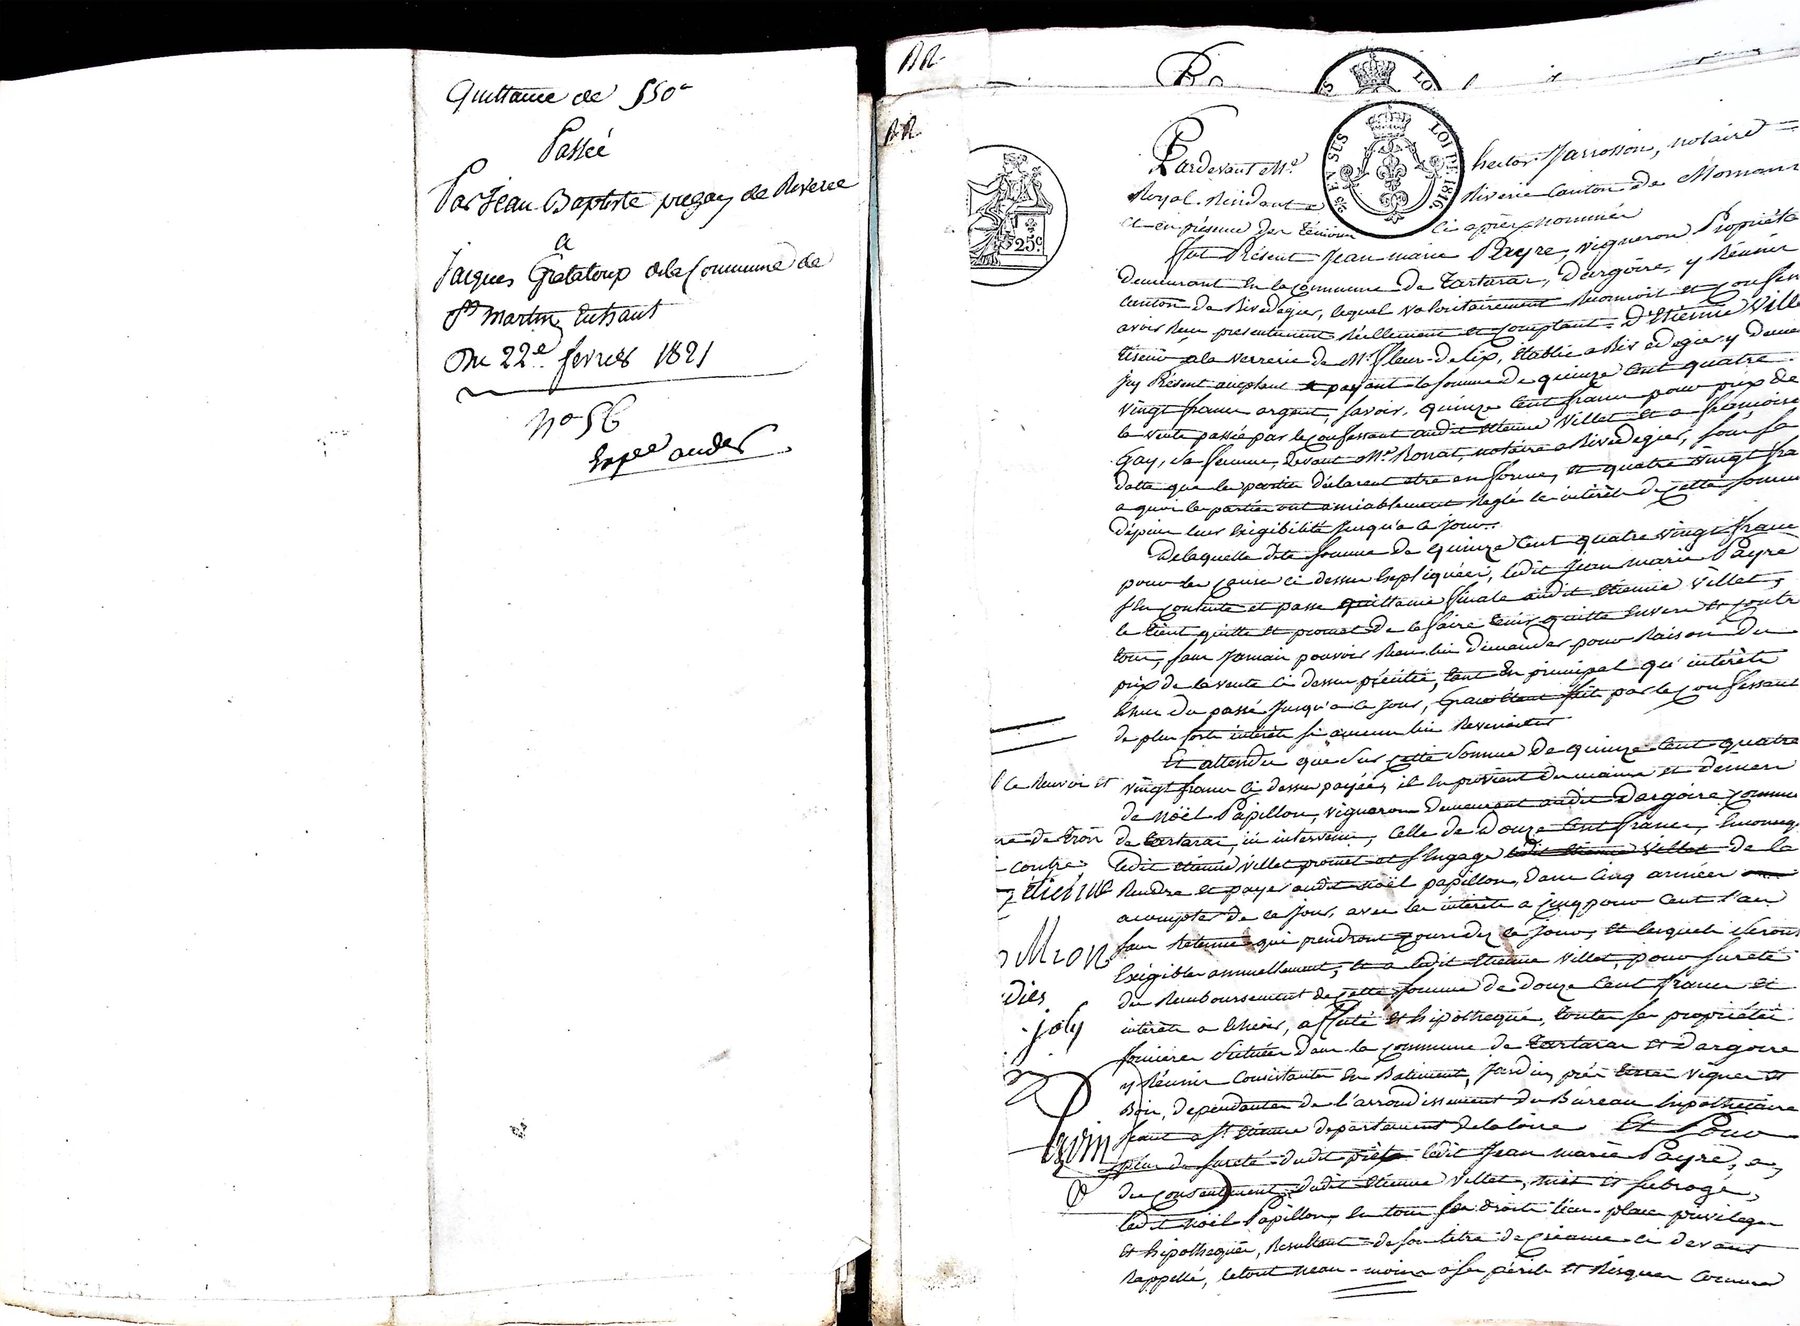 Quittance de 550 f
Passée
Par Jean Baptiste pugay de Riverie
a
Jacques Grataloup de la Commune de
St martin Enhaut
Du 22e fevrier 1821
No 56
Exp.ée
RR
RR
25c
EN SUS
LOI DE 1816
Pardevant Me hector Jarrosson, notaire
Royal Résidant a Riverie canton de Mornant
et en présence des témoins ci après nommés
fut Présent Jean marie Payre, vigneron Propriéta
demeurant en la commune de tartaras, Dargoire y Réunir
canton de Rivedegier, lequel volontairement Reconnoit et confes
avoir Reçu présentement Réellement et comptant D'Etienne Ville
tiseur a la verrerie de Mr fleur-delix, établie a Rivedegier y deme
icy Présent acceptant payant la somme de quinze cent quatre
vingt francs argent, savoir, quinze cent francs pour prix de
la vente passée par le confessant audit Etienne Villet et a françoise
Gay, sa femme, devant Me Ronat, notaire a Rivedegier, sous sa
datte que les parties déclarent etre en forme, et quatre vingt fra
a quoi les parties ont amiablement Reglé les intérêts de cette somme
depuis leur Exigibilité jusqu'a ce jour.
De laquelle dite somme de quinze cent quatre vingt francs
pour les causes ci dessus Expliquées, ledit Jean marie Payre
s'En contente et passe quittance finale audit Etienne Villet,
le tient quitte et promet de le faire tenir quitte Envers et contre
tous, sans jamais pouvoir Rien lui demander pour Raison du
prix de la vente ci dessus précitée, tant En principal qu'intérêts
Echus du passé jusqu'a ce jour, Grace Etant faite par le confessant
de plus forts intérêts si aucuns lui Revenoient
Et attendu que sur cette somme de quinze cent quatre
vingt francs ci dessus payée, il En provient des mains et deniers
de Noël Papillon, vigneron demeurant audit Dargoire commune
de tartaras, ici intervenu, celle de Douze cent francs,
ledit Etienne Villet promet et s'Engage ledit Etienne Villet de la
Rendre et payer audit Noël papillon, dans cinq années
acompter de ce jour, avec les intérêts a cinq pour cent l'an
sans Retenue qui prendront cours dez ce jour, et lesquels seront
Exigibles annuellement, et a ledit Etienne Villet, pour sureté
du Remboursement de cette somme de douze cent francs et
intérêts a Echoir, affecté Et hipothequé, toutes ses propriétés
foncieres situées dans la commune de tartaras et dargoire
y Réunir Consistantes En Batiments, Jardin, prés terres vignes et
Bois, dépendantes de l'arrondissement du Bureau hipothécaire
séant a St Etienne département de la loire Et Pour
plus de sureté dudit prêt ledit Jean marie Payre, a,
du consentement dudit Etienne Villet, mis et subrogé,
ledit Noël Papillon, En tous ses droits lieu place privileges
Et hipotheques, Résultant de son titre de créance ci devant
Rappellé, letout neanmoins a ses périls et Risques comme
Etienne
joly